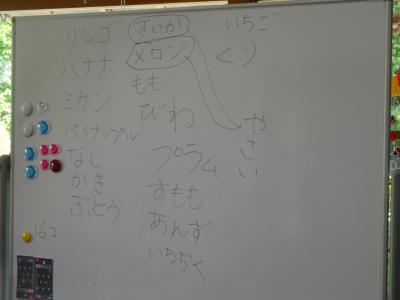 リンゴ
バナナ
ミカン
パイナップル
なし
かき
ぶどう
16コ
すいか
メロン
もも
びわ
プラム
すもも
あんず
いちぢく
いちご
くり
やさい